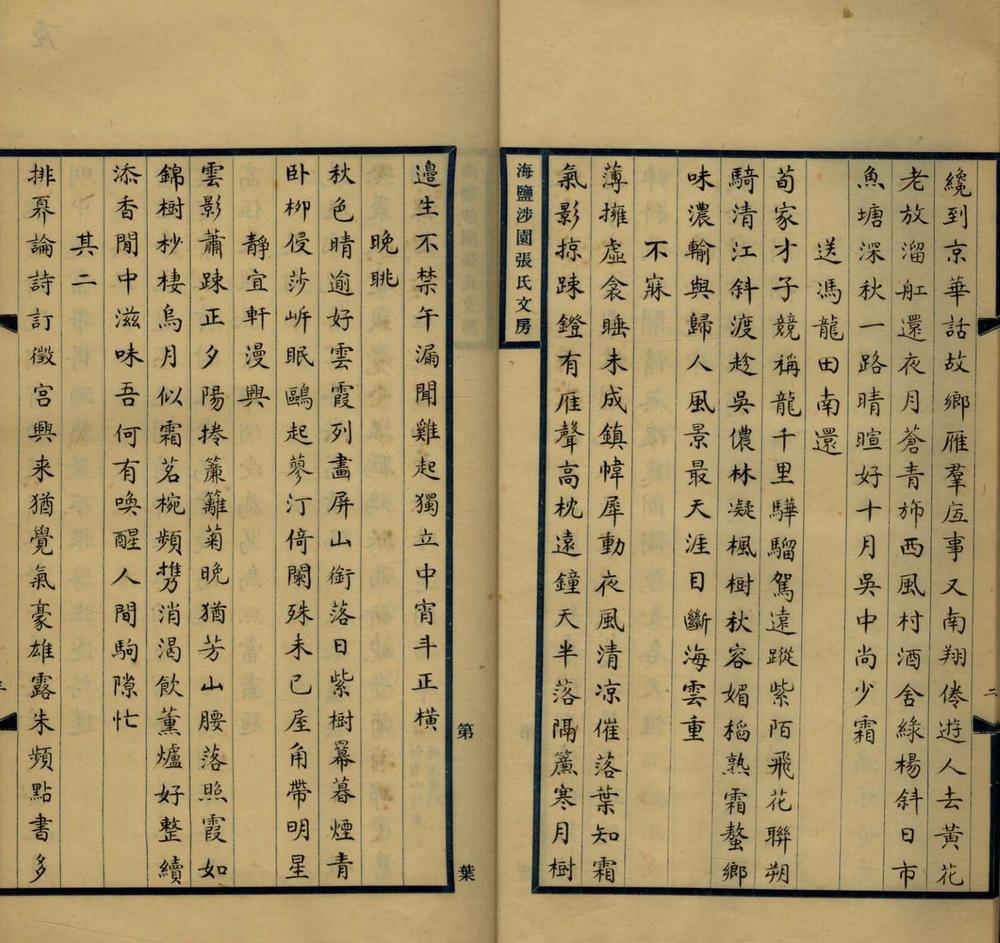 纔到京華話故鄉雁羣底事又南翔倦遊人去黃花
老放溜舡還夜月蒼青斾西風村酒舍綠楊斜日市
魚塘深秋一路晴暄好十月吳中尚少霜
送馮龍田南還
荀家才子競稱龍千里驊騮駕遠蹤紫陌飛花聯朔
騎清江斜渡趁吳儂林凝楓樹秋容媚稻熟霜螯鄉
味濃輸與歸人風景最天涯目斷海雲重
不寐
薄擁虛衾睡未成鎮幃犀動夜風清凉催落葉知霜
氣影掠踈鐙有雁聲高枕遠鐘天半落隔簾寒月樹
海鹽涉園張氏文房
二
邊生不禁午漏聞雞起獨立中宵斗正橫
晚眺
秋色晴逾好雲霞列畫屏山銜落日紫樹冪暮煙青
卧栁侵莎岍眠鷗起蓼汀倚闌殊未已屋角帶明星
靜宜軒漫興
雲影蕭踈正夕陽捲簾籬菊晚猶芳山腰落照霞如
錦樹杪棲烏月似霜茗椀頻携消渴飲薰爐好整續
添香閒中滋味吾何有喚醒人間駒隙忙
其二
排纂論詩訂徵宮興来猶覺氣豪雄露朱頻點書多
第 葉